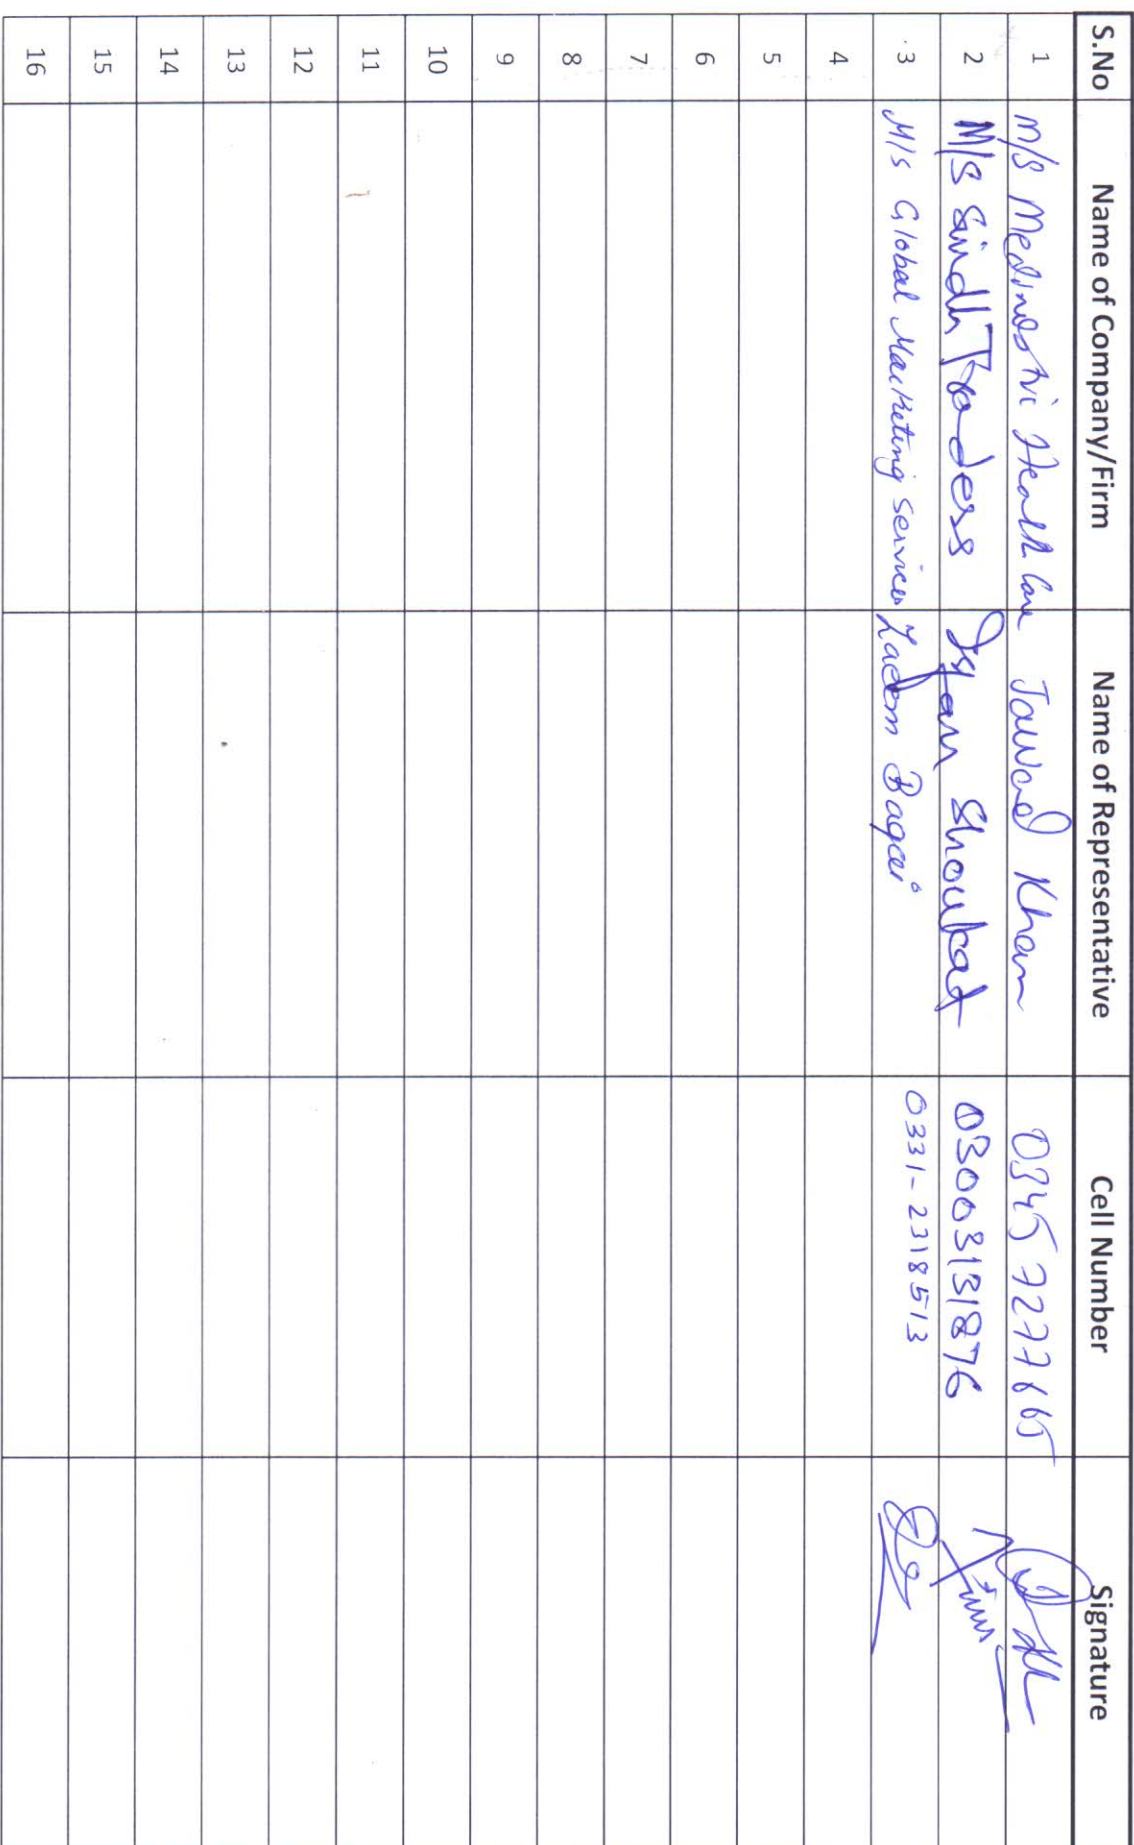 S.No Name of Company/Firm Name of Representative Cell Number Signature
1 M/S Medinostic Health Care Jawad Khan 0345 7277665
2 M/S Sindh Traders Shoukat 03003131876
3 M/S Global Marketing Services Zaeem Baqai 0331-2318513
4
5
6
7
8
9
10
11
12
13
14
15
16